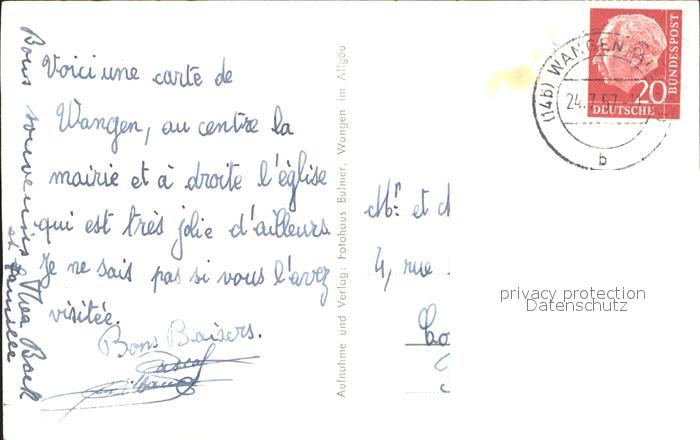 Voici une carte de
Wangen, au centre la
mairie et à droite l'église
qui est très jolie d'ailleurs
Je ne sais pas si vous l'avez
visitée.
Bons Baisers.
Pascal
Bons souvenirs Thea Bock
et famille
Aufnahme und Verlag: Fotohaus Bulmer, Wangen im Allgäu
(14b) WANGEN
24.7.57
b
20
DEUTSCHE
BUNDESPOST
Mr. et
4, rue
privacy protection
Datenschutz